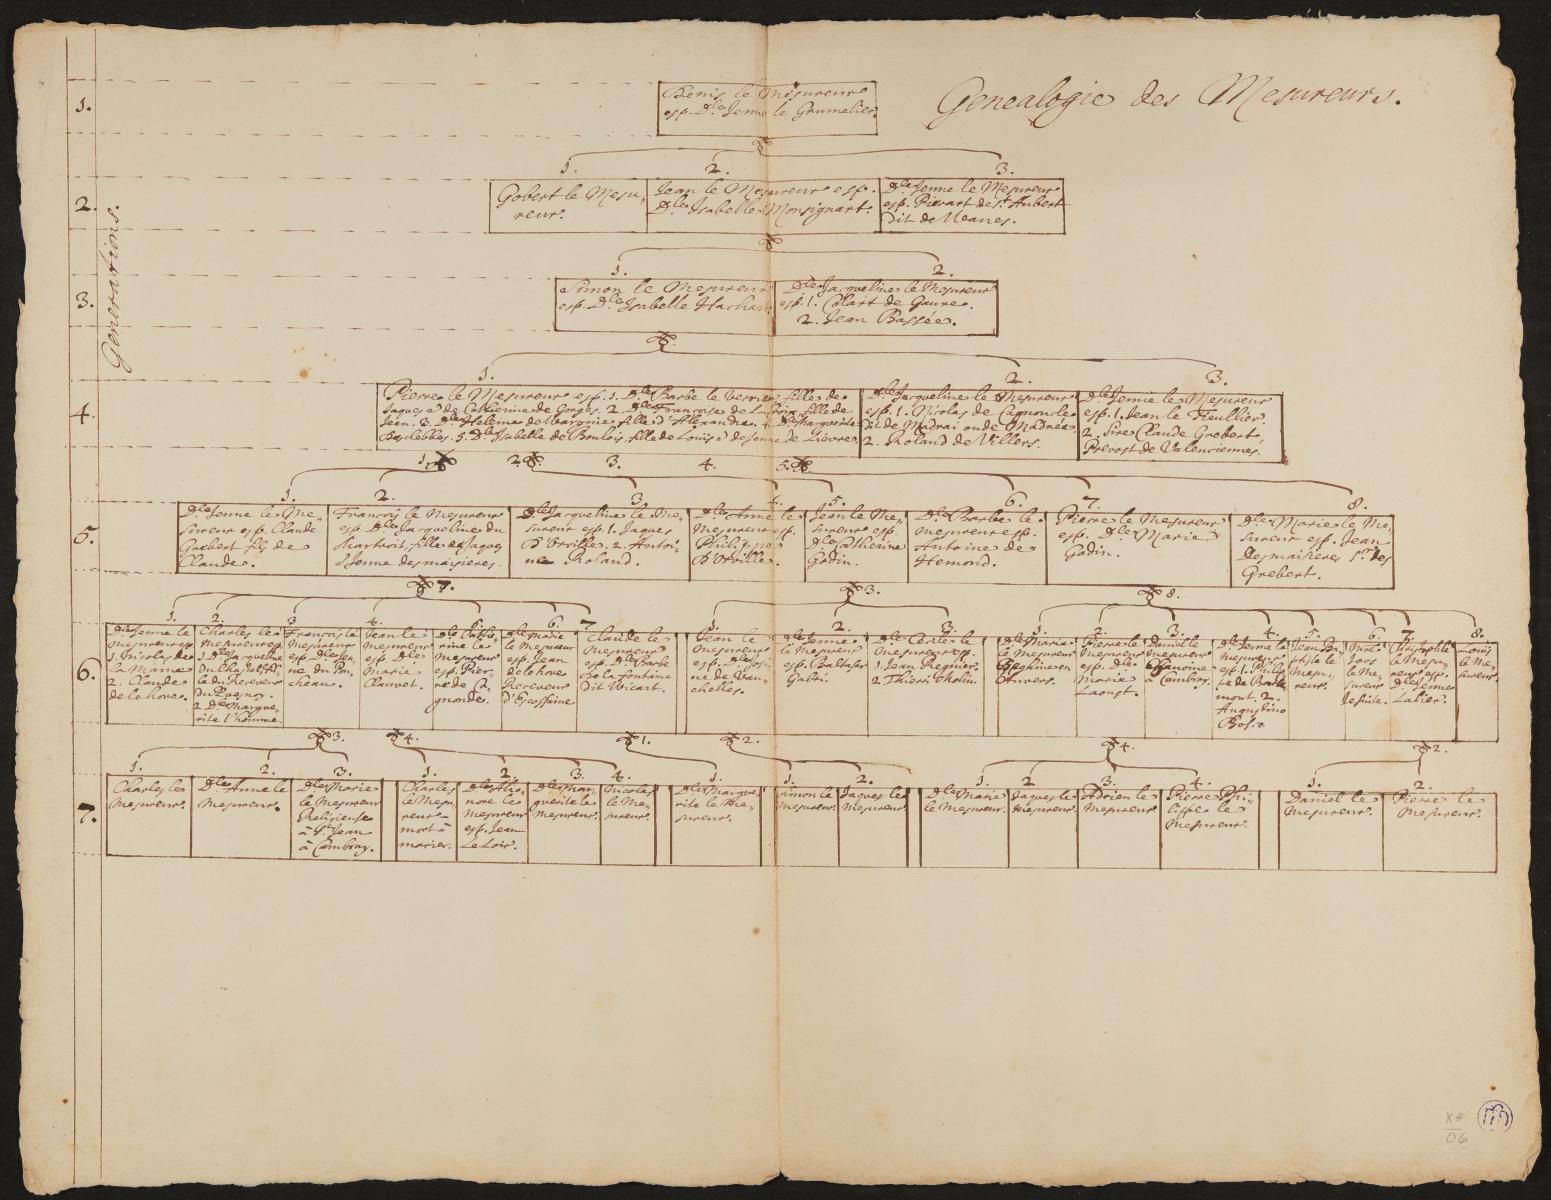 Genealogie des Mesureurs.
Generations.
1.
Denis le Mesureur
esp. Dle Jenne le Grumelier.
2.
1. 2. 3.
Gobert le Mesu-
reur.
Jean le Mesureur esp.
Dle Isabelle Monsignart.
Dle Jenne le Mesureur
esp. Pierart de St Aubert
dit de Meanes.
3.
1. 2.
Simon le Mesureur
esp. Dle Isabelle Hachart
Dle Jacqueline le Mesureur
esp. 1. Colart de Gaure.
2. Jean Bassée.
4.
1. 2. 3.
Pierre le Mesureur esp. 1. Dle Barbe le Verrier fille de
Jaques & de Catherine de Gorges. 2. Dle Françoise de fille de
Jean. 3. Dle Helenne de fille d'Alexandre. 4. Dle Marguerite
5. Dle Isabelle de Boulois fille de Louis & de Jenne de Lievre.
Dle Jacqueline le Mesureur
esp. 1. Nicolas de Cagnoncle
dit de Madrai ou de Madrée
2. Roland de Villers.
Dle Jenne le Mesureur
esp. 1. Jean le Fœullier.
2. Sire Claude Grebert,
Prevost de Valenciennes.
1. 2. 3. 4. 5.
5.
1. 2. 3. 4. 5. 6. 7. 8.
Dle Jenne le Me-
sureur esp. Claude
Grebert fils de
Claude.
François le Mesureur
esp. Dle Jacqueline du
fille de Jaques
& Jenne desmaisieres.
Dle Jacqueline le Me-
sureur esp. 1. Jaques
D'Orville. 2. Antoi-
ne Roland.
Dle Anne le
Mesureur esp.
Philippe
D'Orville.
Jean le Me-
sureur esp.
Dle Catherine
Godin.
Dle Barbe le
Mesureur esp.
Antoine de
Hemond.
Pierre le Mesureur
esp. Dle Marie
Godin.
Dle Marie le Me-
sureur esp. Jean
Desmaisieres Sr des
Grebert.
7. 3. 8.
6.
1. 2. 3 4. 5. 6. 7
Dle Jenne le
Mesureur esp.
1. Nicolas de
la Manne
2. Claude
de le hove.
Charles le
Mesureur esp.
1. Dle Jacqueline
du
le du Receveur
du Quesnoy.
2. Dle Margue-
rite l'homme.
François le
Mesureur
esp. Dle Jen-
ne du Pon-
cheau.
Jean le
Mesureur
esp. Dle
Marie
Clauvet.
Dle Cathe-
rine le
Mesureur
esp. Pier-
re de Ca-
gnoncle.
Dle Marie
le Mesureur
esp. Jean
de le hove
Receveur
d'Escoffiaine
Claude le
Mesureur
esp. Dle Barbe
de la fontaine
dit Wicart.
1. 2. 3.
Jean le
Mesureur
esp. Dle Josi-
ne de Van-
chelles.
Dle Jenne
le Mesureur
esp. Baltasar
Gubin.
Dle Cecile le
Mesureur esp.
1. Jean Regnier.
2 Thieri Cholin.
1. 2. 3. 4. 5. 6. 7. 8.
Dle Marie
le Mesureur
Beghine en
Anvers.
Pierre le
Mesureur
esp. Dle
Marie
Laoust.
Daniel le
Mesureur
Chanoine
à Cambray.
Dle Jenne le
Mesureur
esp. 1. Philip-
pe de
mont. 2.
Augustino
Bosso
Jean Bap-
tiste le
Mesu-
reur.
Pere
Joos
le Me-
sureur
Jesuite.
Christophle
le Mesu-
reur esp.
Dle Jenne
Latier.
Louis
le Me-
sureur.
3. 4. 1. 2. 4. 2.
7.
1. 2. 3.
Charles le
Mesureur.
Dle Anne le
Mesureur.
Dle Marie
le Mesureur
Religieuse
à St Jean
à Cambray.
1. 2. 3. 4.
Charles
le Mesu-
reur
mort à
marier.
Dle Alie-
nore le
Mesureur
esp. Jean
Le Loir.
Dle Mar-
guerite le
Mesureur.
Nicolas
le Me-
sureur.
1.
Dle Margue-
rite le Me-
sureur.
1. 2.
Simon le
Mesureur.
Jaques le
Mesureur.
1. 2 3. 4.
Dle Marie
le Mesureur.
Jaques le
Mesureur.
Adrien le
Mesureur.
Pierre Phi-
lippe le
Mesureur.
1. 2.
Daniel le
Mesureur.
Pierre le
Mesureur.
X #
06